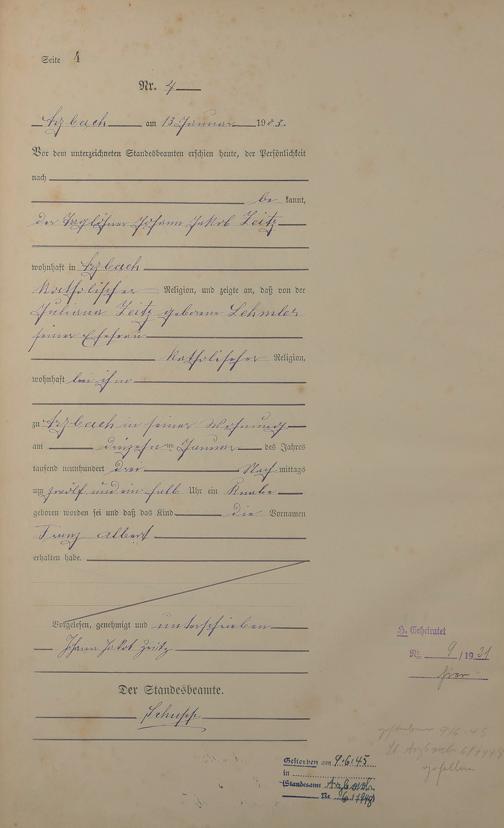 Seite 4
Nr. 4
Arzbach am 13 Januar 1903.
Vor dem unterzeichneten Standesbeamten erschien heute, der Persönlichkeit
nach
be kannt,
der Taglöhner Johann Jakob Zeitz
wohnhaft in Arzbach
katholischer Religion, und zeigte an, daß von der
Juliana Zeitz geborene Lehmler
seiner Ehefrau
katholischer Religion,
wohnhaft bei ihm
zu Arzbach in seiner Wohnung
am Januar des Jahres
tausend neunhundert drei Nach mittags
um zwölf und ein halb Uhr ein Knabe
geboren worden sei und daß das Kind die Vornamen
Franz Albert
erhalten habe.
Vorgelesen, genehmigt und unterschrieben
Johann Jakob Zeitz
Der Standesbeamte.
H. Geheiratet
Nr. 9 / 1931
hier
gestorben 9.6.45
St. Arzbach
gefallen
Gestorben am 9.6.45
in
Standesamt Arzbach
Nr 6/1949